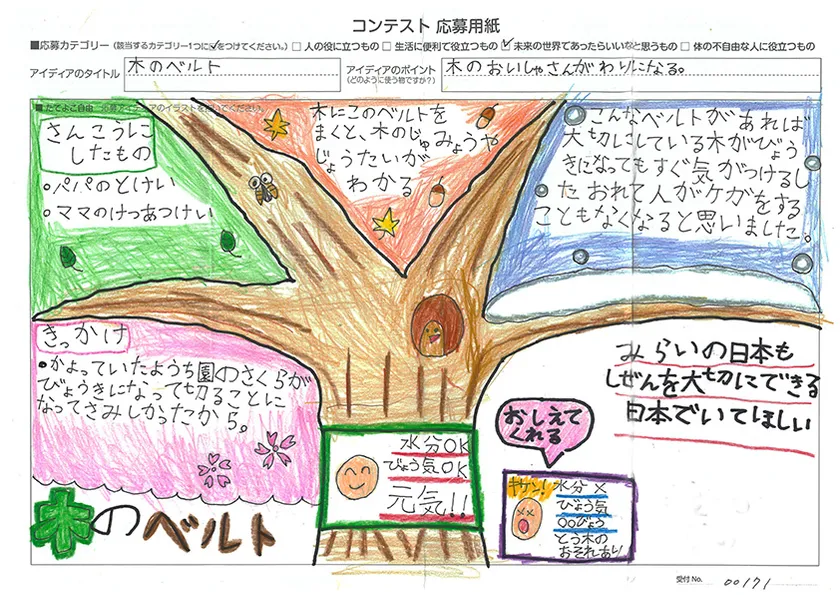 コンテスト 応募用紙
■応募カテゴリー (該当するカテゴリー1つに✓をつけてください。) □ 人の役に立つもの □ 生活に便利で役立つもの ☑ 未来の世界であったらいいなと思うもの □ 体の不自由な人に役立つもの
アイディアのタイトル 木のベルト
アイディアのポイント 木のおいしゃさんがわりになる。
(どのように使う物ですか?)
■ たてよこ自由 応募アイディアのイラストを描いてください。
さんこうに
したもの
・パパのとけい
・ママのけつあつけい
木にこのベルトを
まくと、木のじゅみょうや
じょうたいが
わかる
こんなベルトがあれば
大切にしている木がびょう
きになってもすぐ気がつけるし
たおれて人がケガをする
こともなくなると思いました。
きっかけ
・かよっていたようち園のさくらが
びょうきになって切ることに
なってさみしかったから。
みらいの日本も
しぜんを大切にできる
日本でいてほしい
おしえて
くれる
水分OK
びょう気OK
元気!!
キケン!
水分×
びょう気
○○びょう
とう木の
おそれあり
木のベルト
受付No. 00171